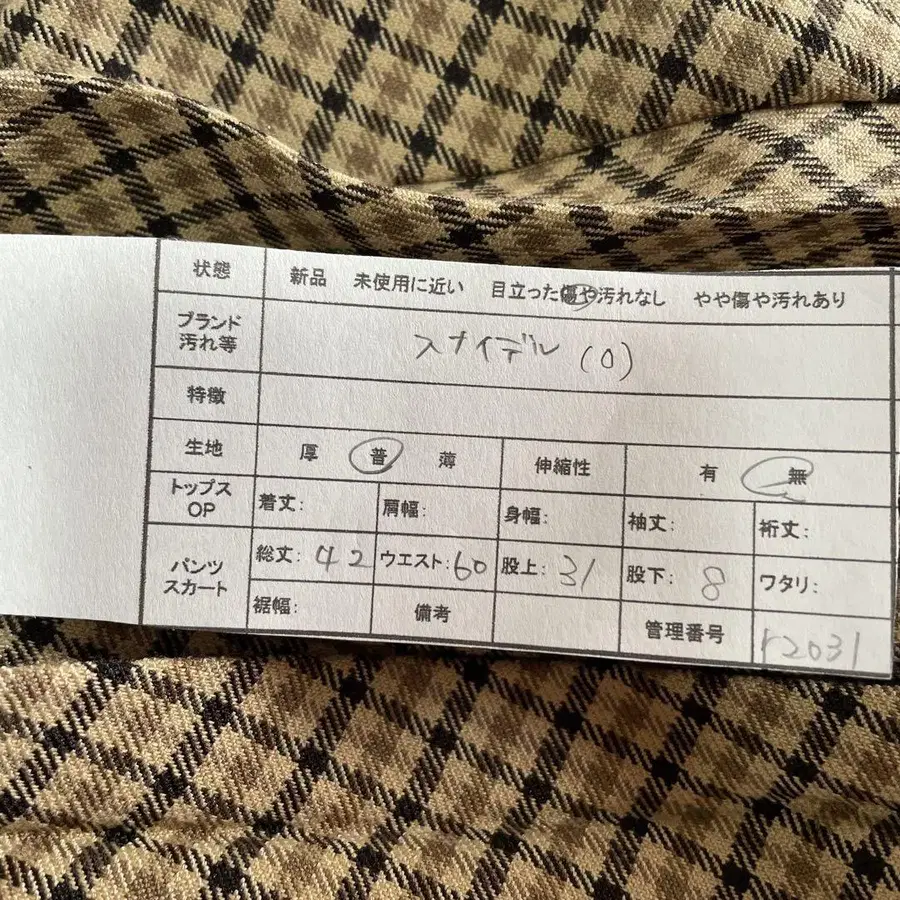 状態 新品 未使用に近い 目立った傷や汚れなし やや傷や汚れあり
ブランド
汚れ等 スナイデル (0)
特徴
生地 厚 普 薄 伸縮性 有 無
トップス
OP 着丈: 肩幅: 身幅: 袖丈: 裄丈:
パンツ
スカート 総丈: 42 ウエスト: 60 股上: 31 股下: 8 ワタリ:
裾幅: 備考 管理番号 r2031